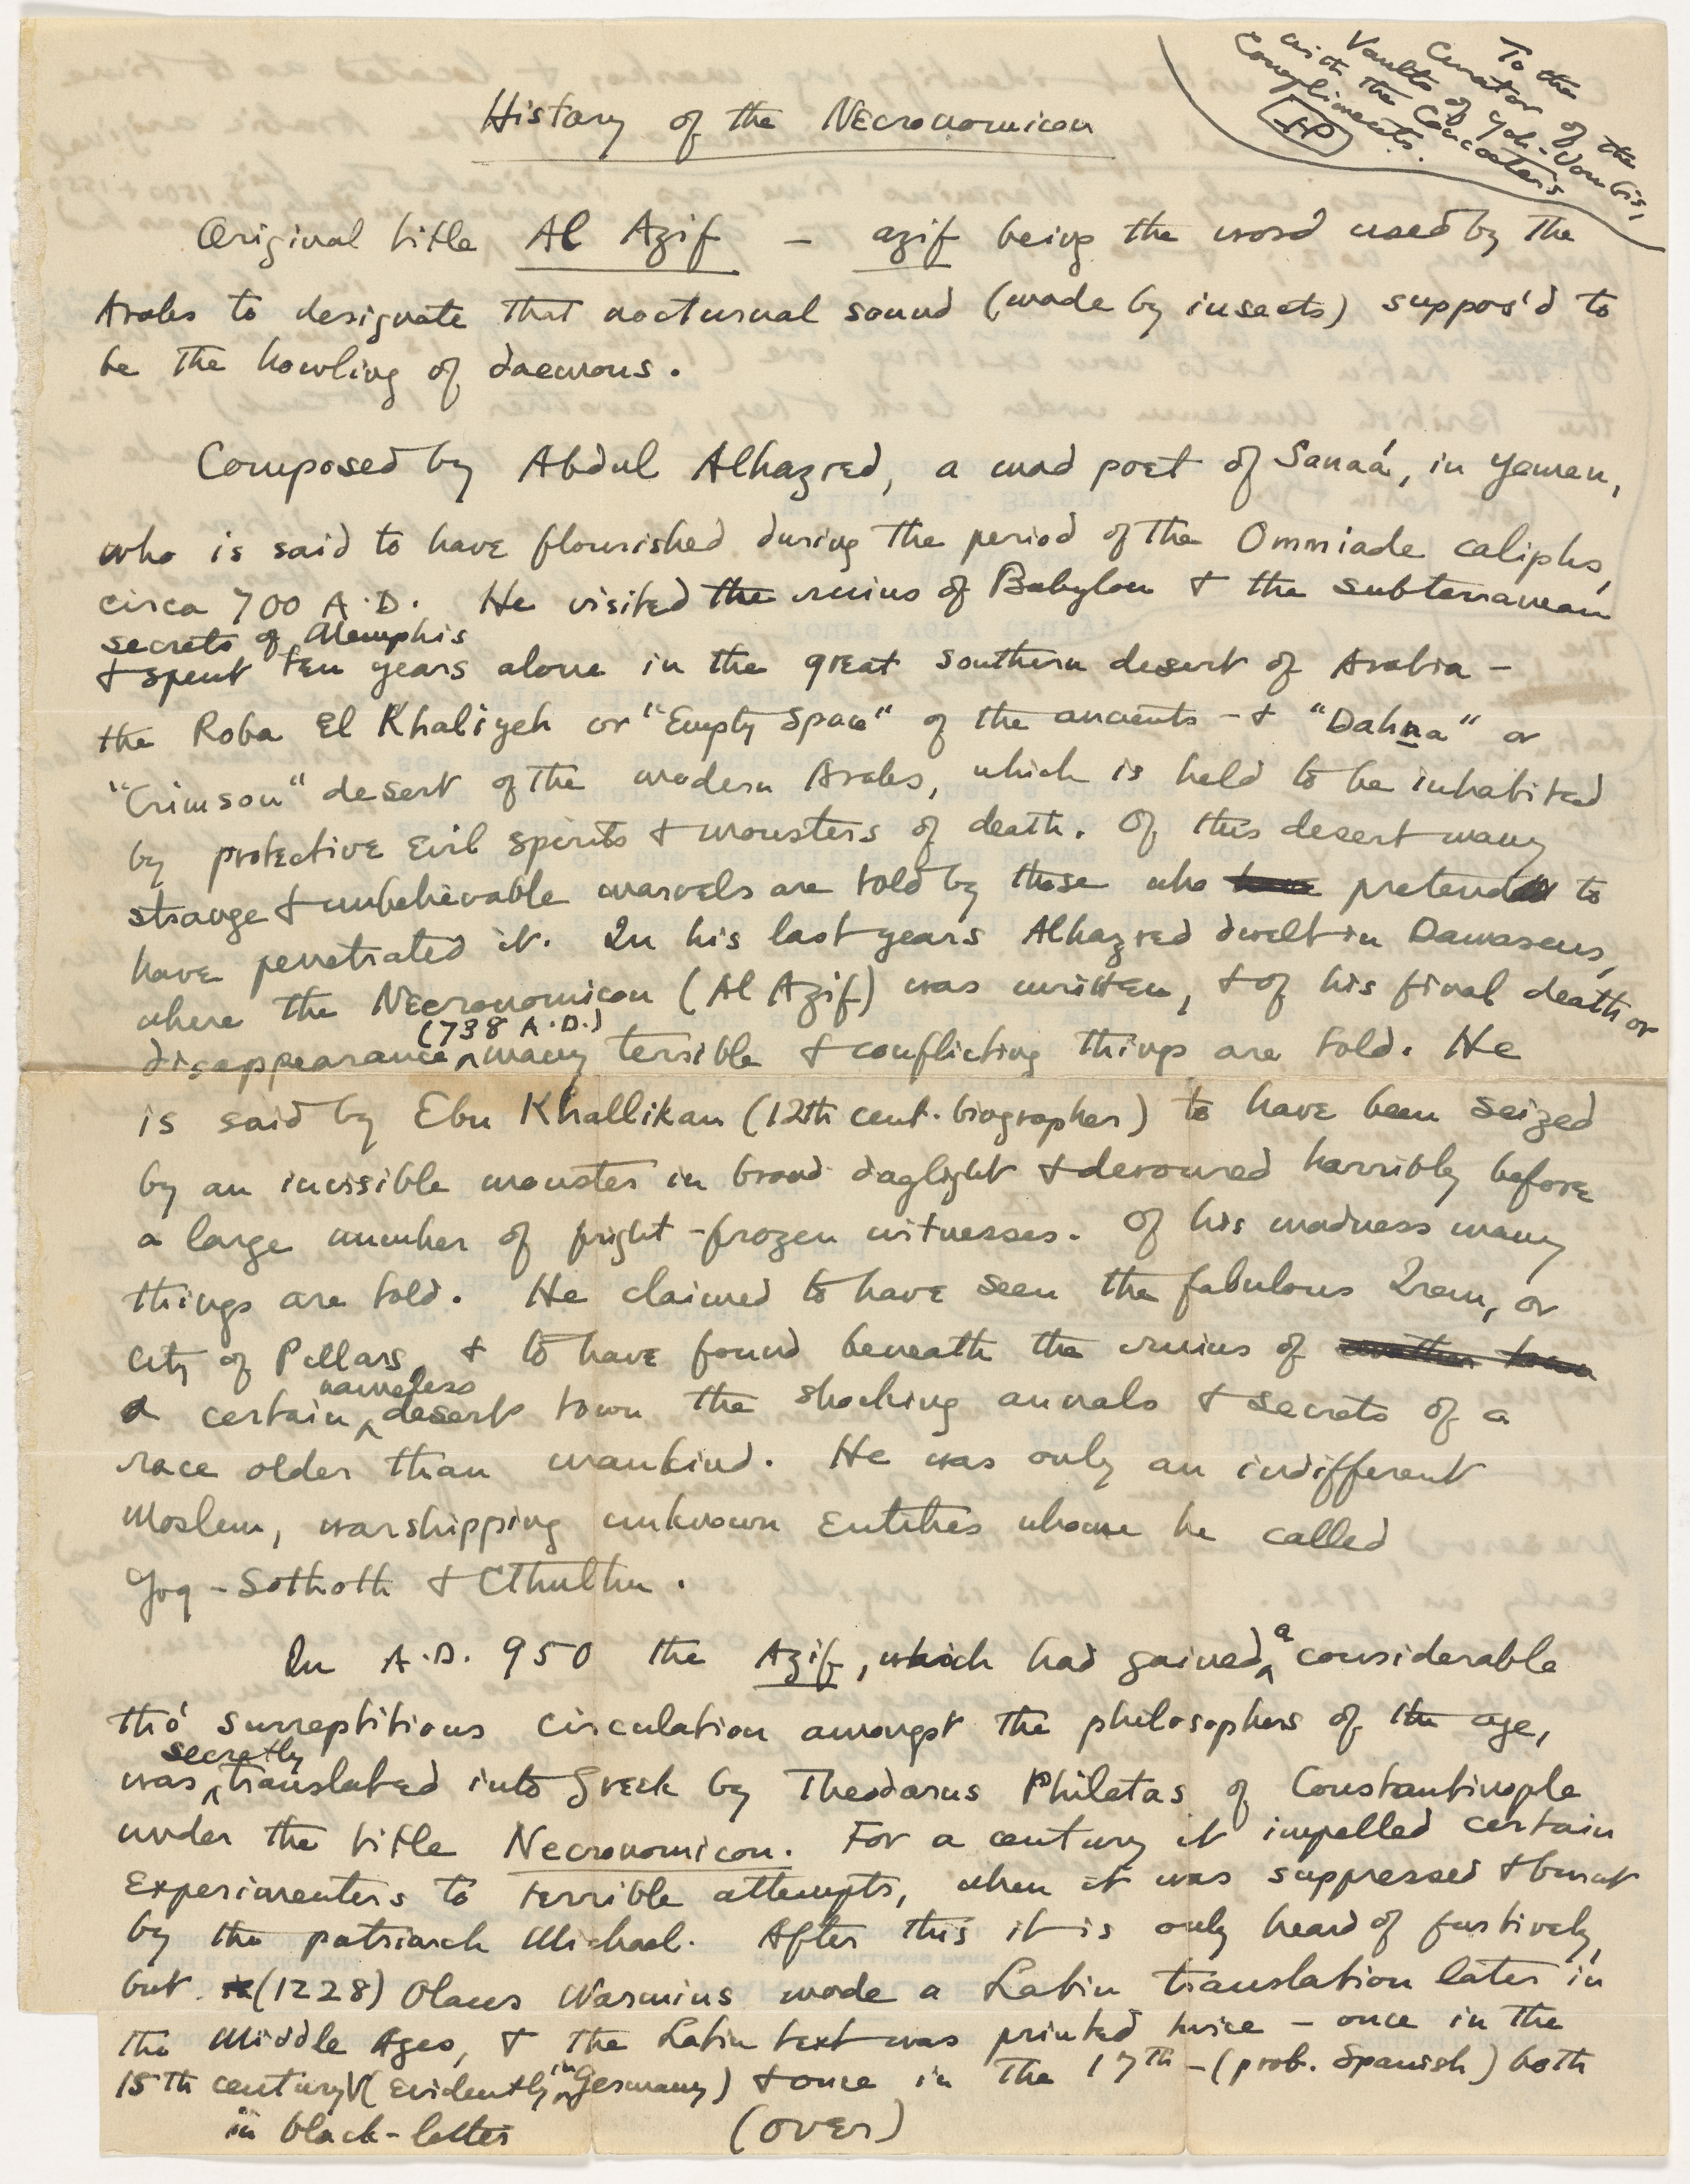 To the
Curator of the
Vaults of Yoh-Vombis,
with the Concocter's
Compliments.
History of the Necronomicon
Original title Al Azif — azif being the word used by the
Arabs to designate that nocturnal sound (made by insects) suppos'd to
be the howling of daemons.
Composed by Abdul Alhazred, a mad poet of Sanaá, in Yemen,
who is said to have flourished during the period of the Ommiade caliphs,
circa 700 A.D. He visited the ruins of Babylon & the subterranean
secrets of Memphis
& spent ten years alone in the great southern desert of Arabia —
the Roba El Khaliyeh or "Empty Space" of the ancients — & "Dahna" or
"Crimson" desert of the modern Arabs, which is held to be inhabited
by protective evil spirits & monsters of death. Of this desert many
strange & unbelievable marvels are told by those who have pretend to
have penetrated it. In his last years Alhazred dwelt in Damascus,
where the Necronomicon (Al Azif) was written, & of his final death or
disappearance (738 A.D.) many terrible & conflicting things are told. He
is said by Ebn Khallikan (12th cent. biographer) to have been seized
by an invisible monster in broad daylight & devoured horribly before
a large number of fright-frozen witnesses. Of his madness many
things are told. He claimed to have seen the fabulous Irem, or
City of Pillars, & to have found beneath the ruins of another town
a certain nameless desert town the shocking annals & secrets of a
race older than mankind. He was only an indifferent
Moslem, worshipping unknown Entities whom he called
Yog-Sothoth & Cthulhu.
In A.D. 950 the Azif, which had gained a considerable
tho' surreptitious circulation amongst the philosophers of the age,
was secretly translated into Greek by Theodorus Philetas of Constantinople
under the title Necronomicon. For a century it impelled certain
experimenters to terrible attempts, when it was suppressed & burnt
by the patriarch Michael. After this it is only heard of furtively,
but (1228) Olaus Wormius made a Latin translation later in
the Middle Ages, & the Latin text was printed twice — once in the
15th century (evidently in Germany) & once in the 17th — (prob. Spanish) both
in black-letter
(over)